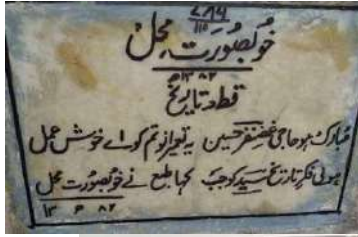 ۷۸۶
۱۱۰
خوبصورت محل
۱۳۸۲ھ
قطعہ تاریخ
مبارک ہو حاجی غضنفر حسین یہ تعمیر نو تم کو اے خوش عمل
ہوئی فکر تاریخ سید کو جب کہا طبع نے خوبصورت محل
۱۳۸۲ھ